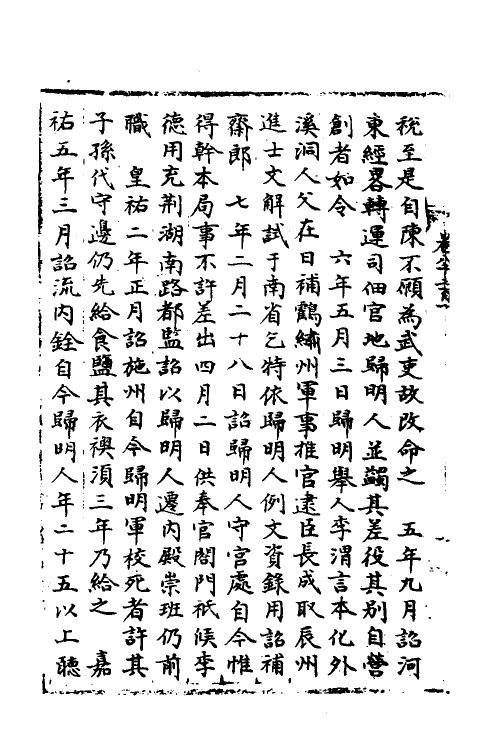 稅至是自陳不願為武吏故改命之　五年九月詔河
東經畧轉運司佃官地歸明人並蠲其差役其別自營
創者如令　六年五月三日歸明舉人李渭言本化外
溪洞人父在日補鶴繡州軍事推官逮臣長成取辰州
進士文解試于南省乞特依歸明人例文資錄用詔補
齋郎　七年二月二十八日詔歸明人守官處自今惟
得幹本局事不許差出四月二日供奉官閤門祗候李
德用充荆湖南路都監詔以歸明人遷內殿崇班仍前
職　皇祐二年正月詔施州自今歸明軍校死者許其
子孫代守邊仍先給食鹽其衣襖湏三年乃給之　嘉
祐五年三月詔流內銓自今歸明人年二十五以上聽